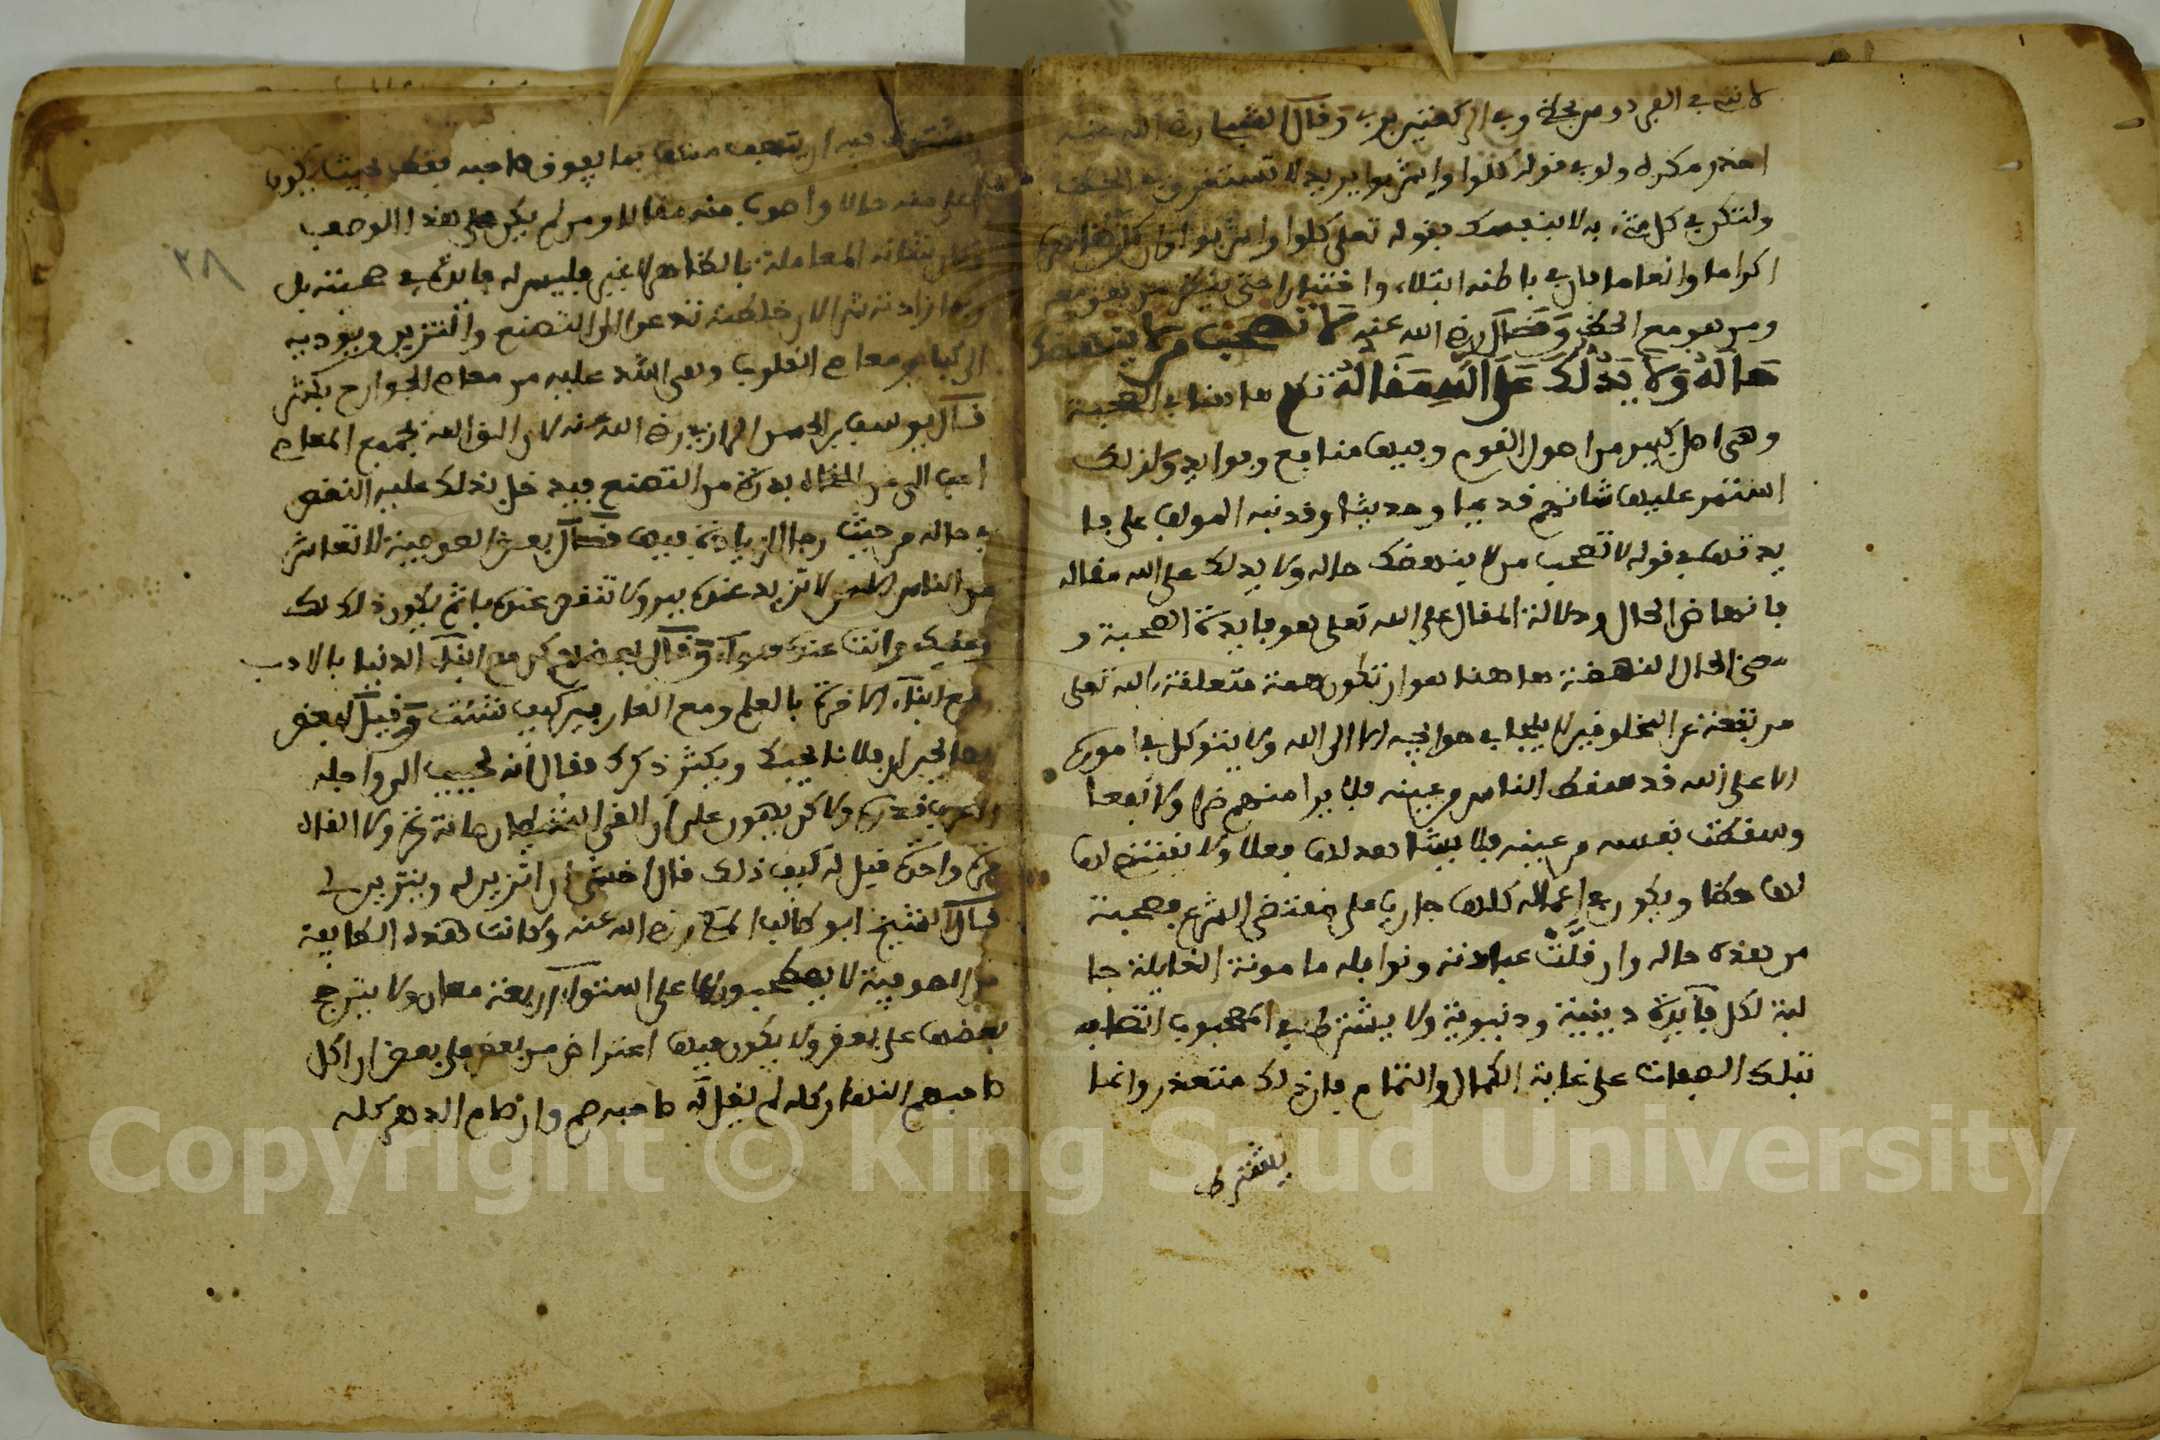 لانه في الفردوس نجاة وفي الركعتين بربي وقال الشبلي رضي الله عنه
احذر مكره ولو في قوله كلوا واشربوا يريد لا تستغرق في الحظ
ولتكن في كل شيء به لا بنفسك فقوله تعلى كلوا واشربوا وان كان ظاهره
اكراما وانعاما فان في باطنه ابتلاء واختبارا حتى ينظر من هو معه
ومن هو مع الحظ وقال رضي الله عنه لا تصحب من لا ينهضك
حاله ولا يدلك على الله مقاله تكلم هاهنا في الصحبة
وهي اصل كبير من اصول القوم وفيها منافع وفوايد ولذلك
استمر عليها شانهم قديما وحديثا وقد نبه المولف على فا
يدتها في قوله لا تصحب من لا ينهضك حاله ولا يدلك على الله مقاله
فانهاض الحال ودلالة المقال على الله تعلى هو فايدة الصحبة و
معنى الحال المنهضة هاهنا هو ان تكون همته متعلقة بالله تعلى
مرتفعة عن المخلوقين لا يلجا في حوايجه الا الى الله ولا يتوكل في اموره
الا على الله قد سقط الناس من عينه فلا يرا منهم ضرا ولا نفعا
وسقطت نفسه من عينه فلا يشاهد لها فعلا ولا يقتضي لها
لها حظا ويكون في اعماله كلها جاريا على مقتضى الشرع فصحبة
من هذه حاله وان قلت عبادته ونوافله مامونة الغايلة جا
لبة لكل فايدة دينية ودنيوية ولا يشترط في المصحوب اتصافه
بتلك الصفات على غاية الكمال والتمام فان ذلك متعذر وانما
يشترط
يشترط فيه ان يتصف منها بما يفوق صاحبه فقط بحيث يكون
اعلى منه حالا واصوب منه مقالا ومن لم يكن على هذا الوصف
وكان شانه المعاملة بالظاهر لا غير فليس له فايدة في صحبته بل
ربما زادته شرا لان خلطته تدعوا الى التصنع والتزين ويوديه
الى كباير معاصي القلوب وهي اشد عليه من معاصي الجوارح بكثير
قال يوسف بن الحسين الرازي رضي الله عنه لان القى الله بجميع المعاصي
احب الي من القاه بذرة من التصنع فيدخل بذلك عليه النقص
في حاله من حيث رجا الزيادة فيها قال بعض الصوفية لا تعاشر
من الناس الا من لا تزيد عنده ببر ولا تنقص عنده باثم يكون ذلك لك
وعليك وانت عنده سواء وقال بعضهم كن مع ابناء الدنيا بالادب
ومع ابناء الاخرة بالعلم ومع العارفين كيف شئت وقيل لبعض
ان فلانا يحبك ويكثر ذكرك فقال انه لحبيب الي واجله
واعرف قدره ولاكن يهون علي ان القى الشيطان مائة مرة ولا القاه
مرة واحدة قيل له كيف ذلك قال اخشى ان اتزين له ويتزين لي
قال الشيخ ابو طالب المكي رضي الله عنه وكانت هذه الطايفة
من الصوفية لا يصطحبون الا على استواء اربعة معان ولا يترجح
بعضها على بعض ولا يكون فيها اعتراض من بعض على بعض ان اكل
صاحبهم النهار كله لم يقل له صاحبه صم وان صام الدهر كله
٣٨
Copyright © King Saud University